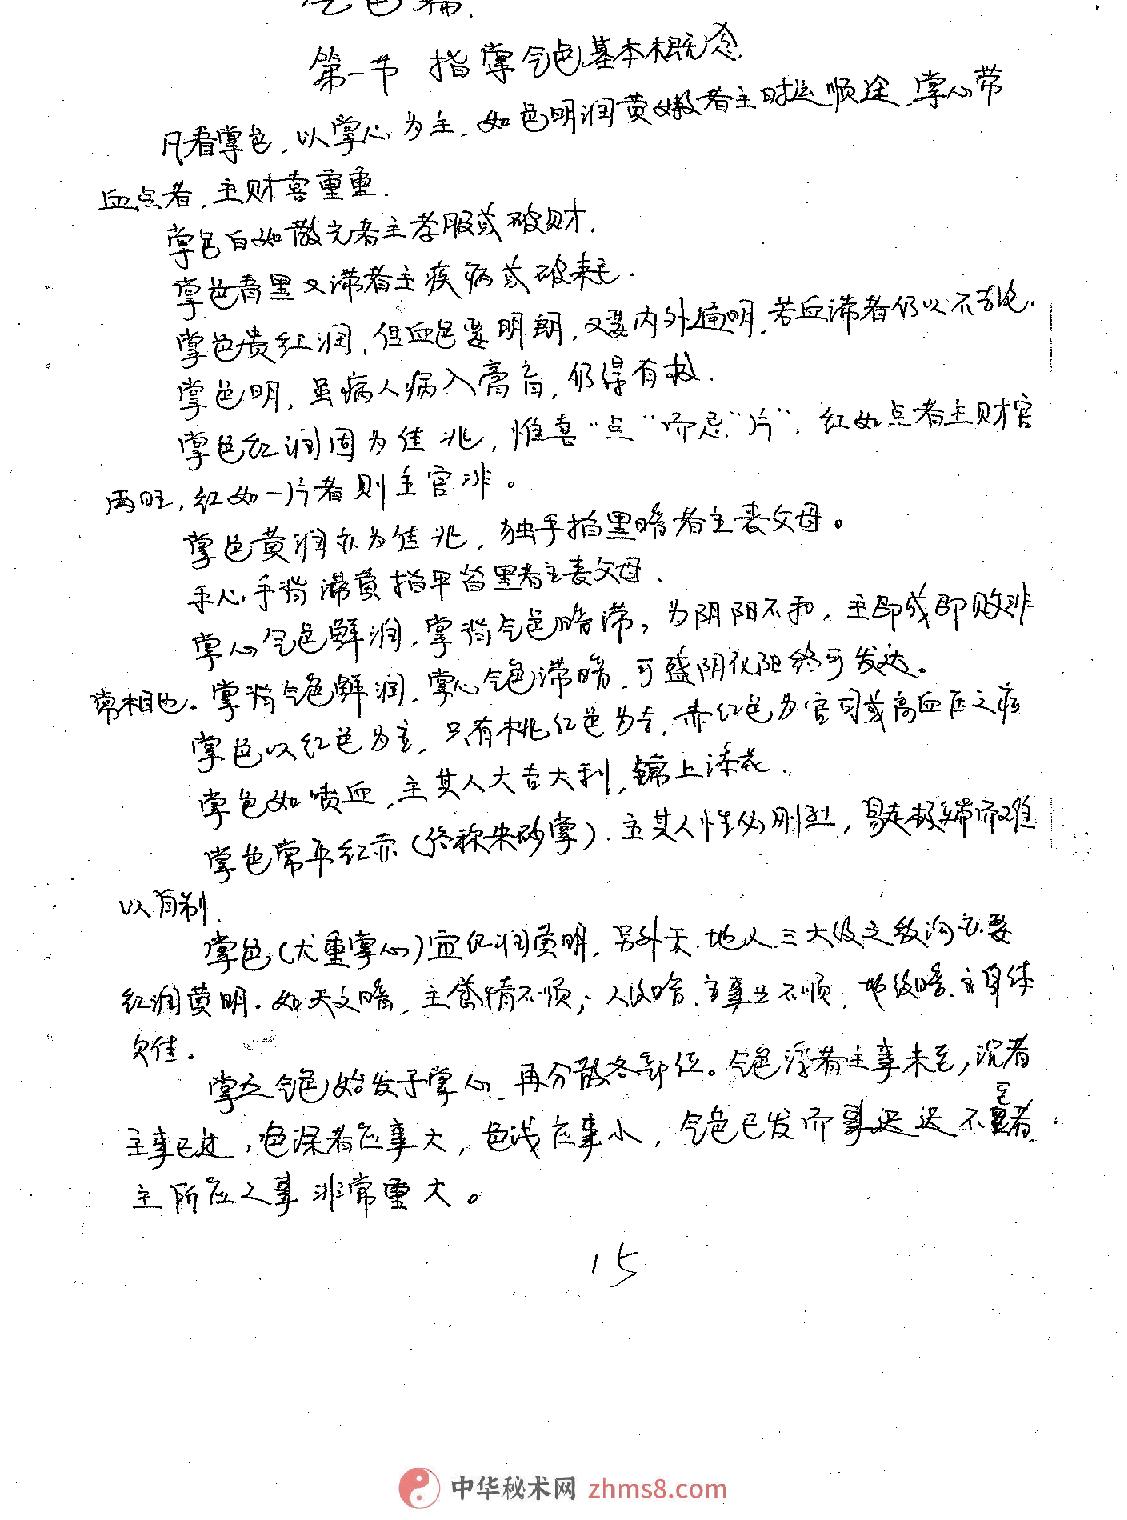 气色篇.
第一节 指掌气色基本概念
凡看掌色,以掌心为主,如色明润黄嫩者主时运顺途,掌心带
血点者,主财喜重重.
掌色白如散光者主孝服或破财.
掌色青黑又滞者主疾病或破耗.
掌色贵红润,但血色要明朗,又要内外通明,若血滞者仍以不吉论.
掌色明,虽病人病入膏肓,仍得有救.
掌色红润固为佳兆,惟喜“点”而忌“片”,红如点者主财官
两旺,红如一片者则主官非。
掌色黄润亦为佳兆,独手指黑暗者主丧父母。
手心手背滞黄指甲皆黑者主丧父母.
掌心气色鲜润,掌背气色暗滞,为阴阳不和,主即成即败非
常相也。掌背气色鲜润,掌心气色滞暗,可盛阴化阳终可发达。
掌色以红色为主,只有桃红色为吉,赤红色为官司或高血压之症
掌色如喷血,主其人大吉大利,锦上添花.
掌色常年红赤(俗称朱砂掌).主其人性必刚烈,易走极端而难
以自制.
掌色(尤重掌心)宜红润黄明,另外天、地、人三大纹之纹沟亦要
红润黄明.如天文暗,主感情不顺;人纹暗,主事业不顺,地纹暗,主身体
欠佳。
掌之气色始发于掌心,再分散各部位。气色浮者主事未至,沉者
主事已过,色深者应事大,色浅应事小,气色已发而事迟迟不至者,
主所应之事非常重大。
15
中华秘术网 zhms8.com